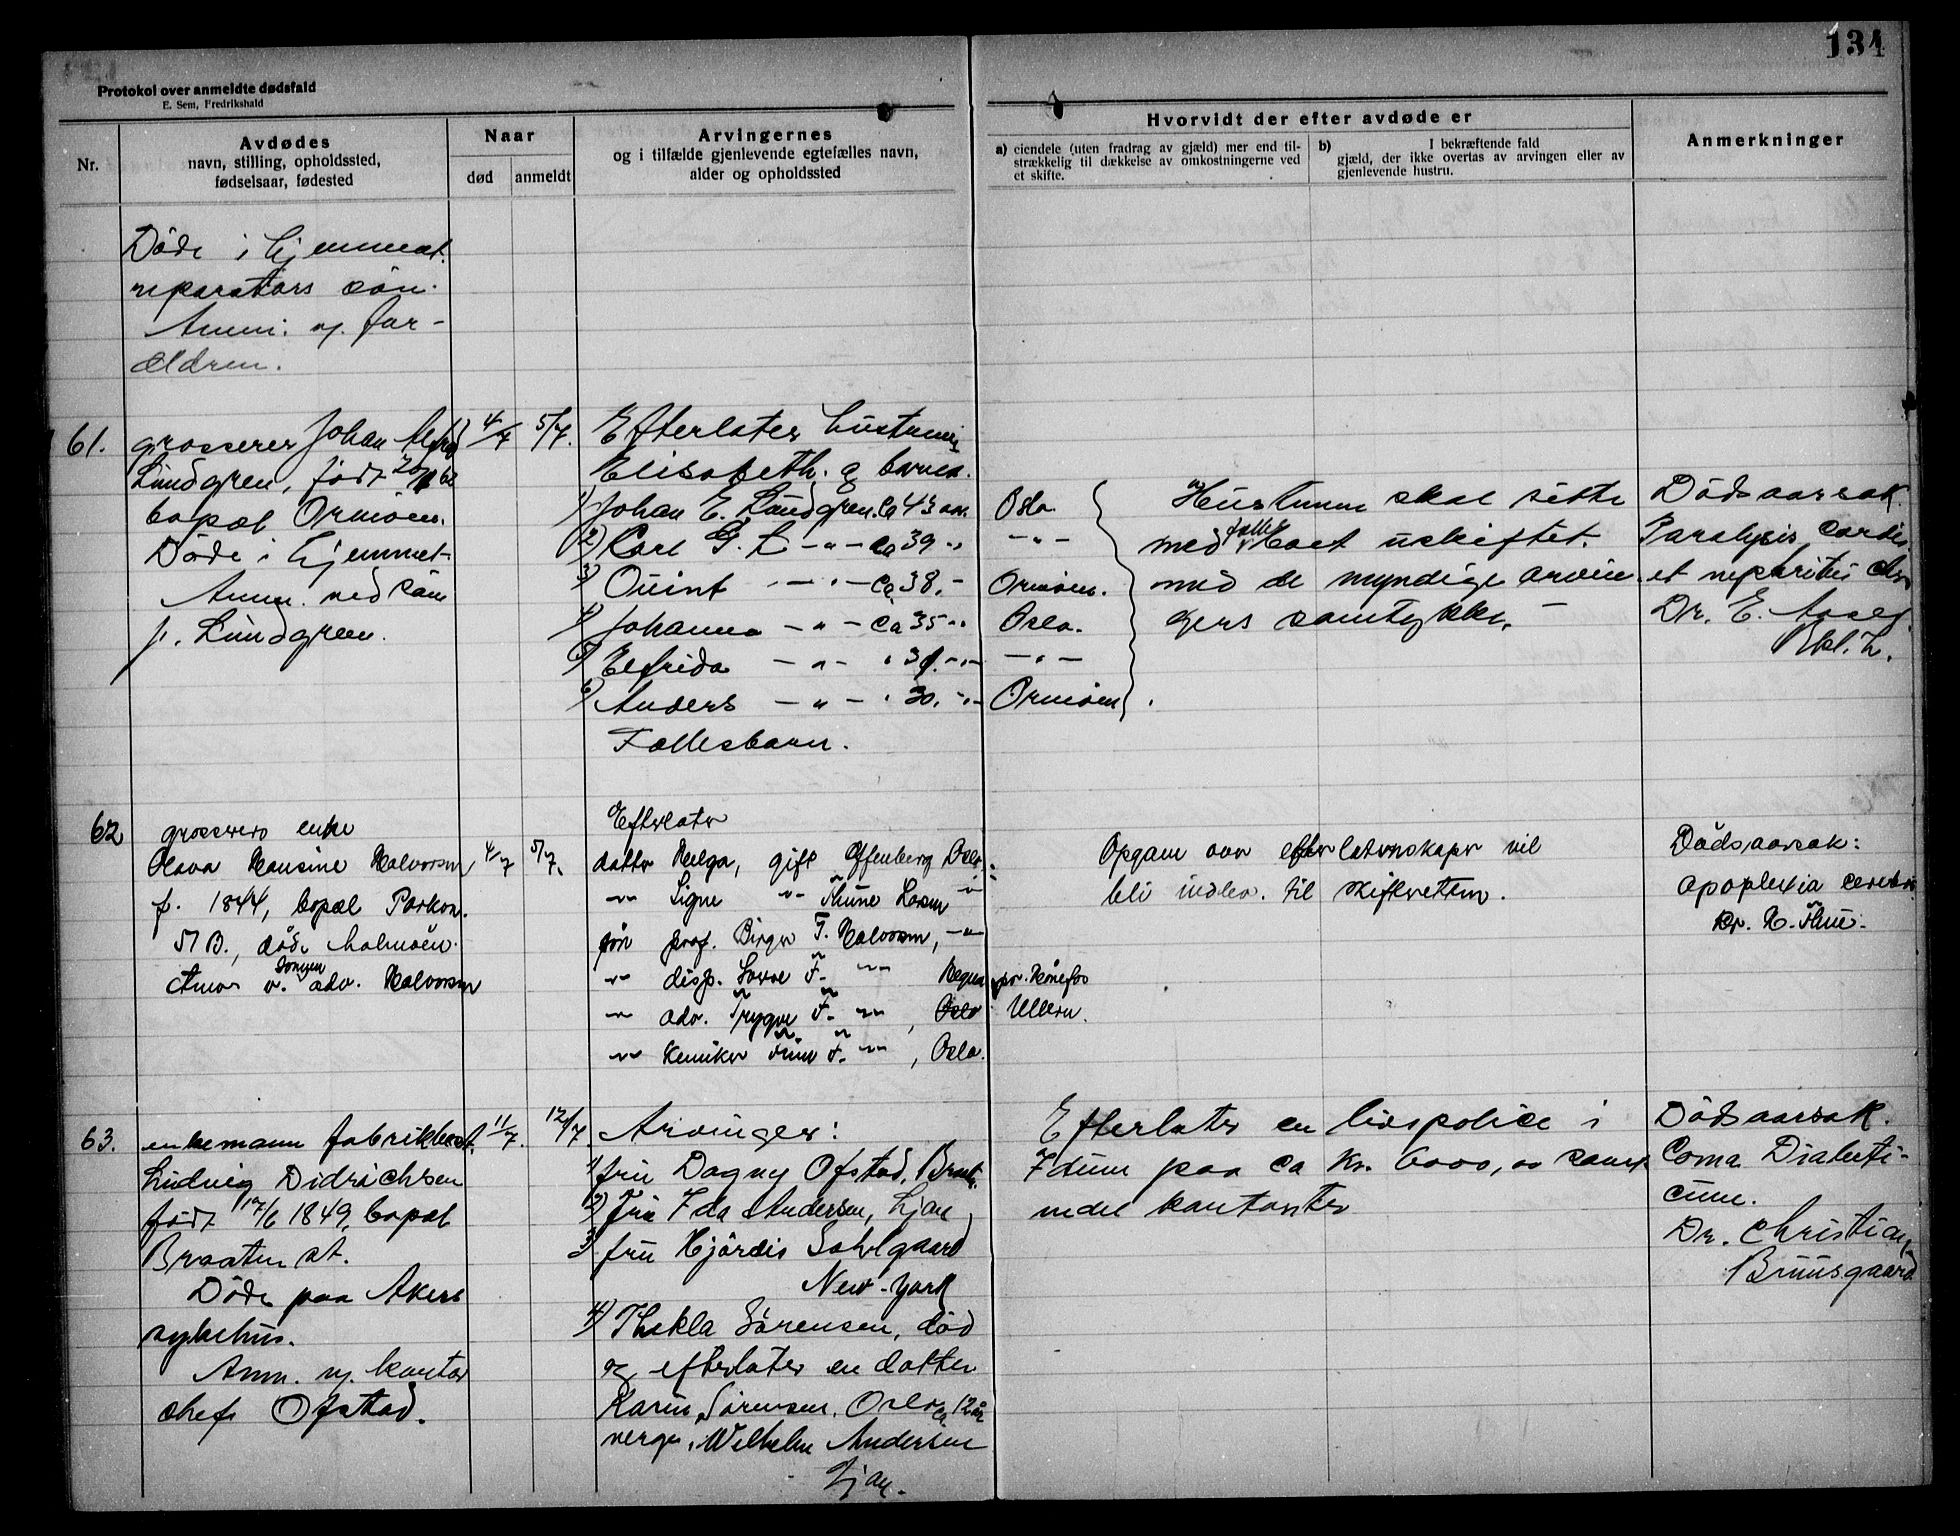 134
Protokol over anmeldte dødsfald
E. Sem, Fredrikshald
Nr.
Avdødes
navn, stilling, opholdssted,
fødselsaar, fødested
Naar
død
anmeldt
Arvingernes
og i tilfælde gjenlevende egtefælles navn,
alder og opholdssted
Hvorvidt der efter avdøde er
a) eiendele (uten fradrag av gjæld) mer end til-
strækkelig til dækkelse av omkostningerne ved
et skifte.
b) I bekræftende fald
gjæld, der ikke overtas av arvingen eller av
gjenlevende hustru.
Anmerkninger
Döde i hjemmet.
reparatörs sön.
Anm. v. for-
ældren.
61.
grosserer Johan Alfred
Lundgren, född
bopæl Ormöen.
Döde i hjemmet-
Anm. ved sön
J. Lundgren.
4/7
5/7.
Efterlater hustruen
Elisabeth. og barna.
1) Johan E. Lundgren. ca 43 aar. Oslo.
2) Carl G. L -"- ca 39 -" -"-
3) Quint -"- ca 38.- Ormöen.
4) Johanna -"- ca 35 -" Oslo.
5) Elfrida -"- " 31. -"- -"-
6) Anders -"- " 30. -"- Ormöen
Fællesbarn.
Hustruen skal sitte
med fælles boet uskiftet.
med de myndige arvin-
gers samtykke. -
Dödsaarsak.
Paralysis cordis
et nephritis chr.
Dr. E.
62
grosserers enke
Olava Hansine Halvorsen
f. 1844, bopæl Parkv.
51 B., död Malmöen.
Anm. v. sönnen adv. Halvorsen
4/7
5/7.
Efterlater
datter Helga, gift Offenberg Oslo
-"- Signe -"- Thune Larsen -"-
sön prof. Birger F. Halvorsen, -"-
-"- disp. F. -"- Begna pr. Hönefos
-"- adv. Trygve F. -"- , Oslo Ullern.
-"- kemiker Finn F. -"- , Oslo.
Opgave over efterlatenskaper vil
bli indlev. til skifteretten.
Dödsaarsak:
apoplexia cerebri
Dr. H. Thue.
63.
enkemann fabrikbest.
Ludvig Didrichsen
född 17/6 1849, bopæl
Braaten st.
Döde paa Akers
sykehus.
Anm. v. kontor
chef Ofstad.
11/7.
12/7.
Arvinger:
1) fru Dagny Ofstad, Braat.
2) Fru Ida Andersen, Ljan
3. fru Hjördis Sahlgaard
New-York
4) Thekla Sörensen, död
og efterlater en datter
Karin Sörensen, Oslo ca 12 år
verge, Wilhelm Andersen
Ljan.
Efterlater en livspolice i
Idun paa ca kr. 6000, samt
endel kontanter
Dödsaarsak.
Coma Diabeti-
cum.
Dr. Christian
Bruusgaard